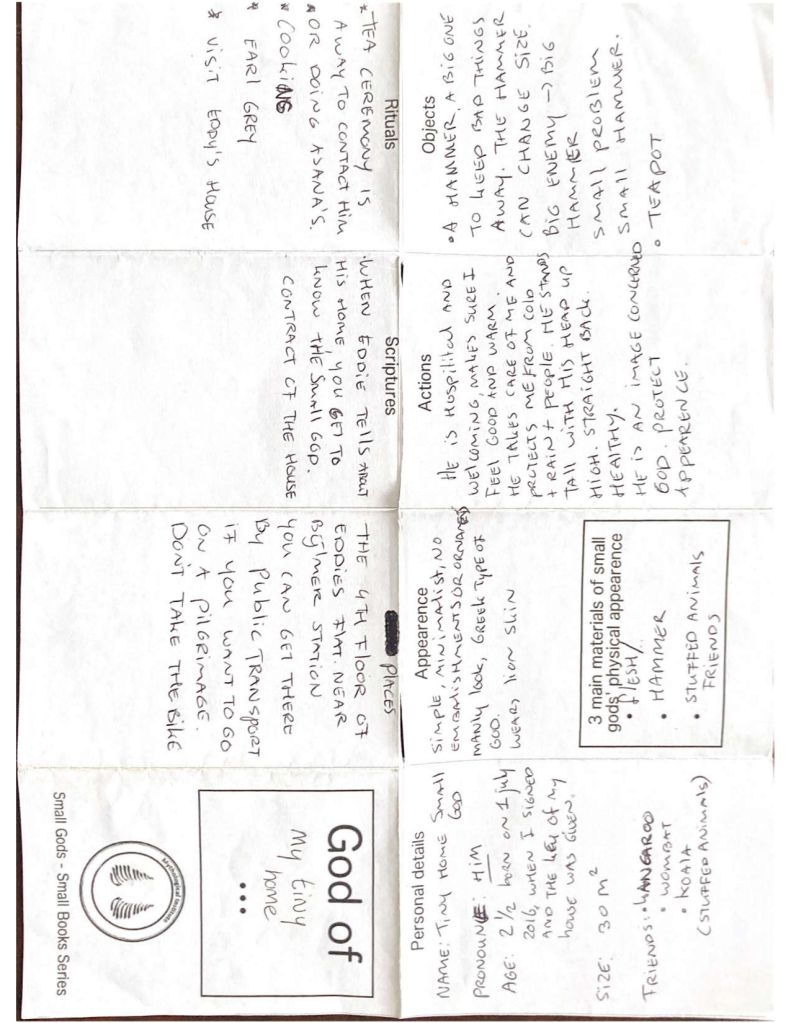 God of
my tiny
home
...
Mythological Institute
Small Gods - Small Books Series
Personal details
NAME: TINY HOME Small
GOD
PRONOUNE: HIM
AGE: 2 1/2 born on 1 july
2016, WHEN I SIGNED
AND THE KEY OF MY
HOUSE WAS GIVEN.
SIZE: 30 m²
FRIENDS: • KANGAROO
• WOMBAT
• KOALA
(STUFFED ANIMALS)
Appearence
SIMPLE, MINIMALIST, NO
EMBALISHMENTS OR
MANLY LOOK, GREEK TYPE OF
GOD.
WEARS lION SKIN
3 main materials of small
gods' physical appearence
• FlESH
• HAMMER
• STUFFED ANIMALS
FRIENDS
Actions
HE IS HOSPILITAL AND
WELCOMING, MAKES SURE I
FEEL GOOD AND WARM.
HE TAKES CARE OF ME AND
PROTECTS ME FROM COLD
+ RAIN + PEOPLE. HE STANDS
TALL WITH HIS HEAD UP
HIGH. STRAIGHT BACK.
HEALTHY.
HE IS AN IMAGE CONCERNED
GOD. PROTECT
APPEARENCE.
Objects
• A HAMMER, A BIG ONE
TO KEEP BAD THINGS
AWAY. THE HAMMER
CAN CHANGE SIZE.
BIG ENEMY → BIG
HAMMER
SMALL PROBLEM
SMALL HAMMER.
• TEAPOT
Rituals
* TEA CEREMONY IS
A WAY TO CONTACT HIM
* OR DOING ASANA'S.
* COOKING
* EARL GREY
* VISIT EDDY'S HOUSE
Scriptures
• WHEN EDDIE TELLS ABOUT
HIS HOME, YOU GET TO
KNOW THE SMALL GOD.
CONTRACT OF THE HOUSE
PLACES
THE 4TH FLOOR OF
EDDIES FLAT. NEAR
BIJLMER STATION
YOU CAN GET THERE
BY PUBLIC TRANSPORT
IF YOU WANT TO GO
ON A PILGRIMAGE.
DON'T TAKE THE BIKE